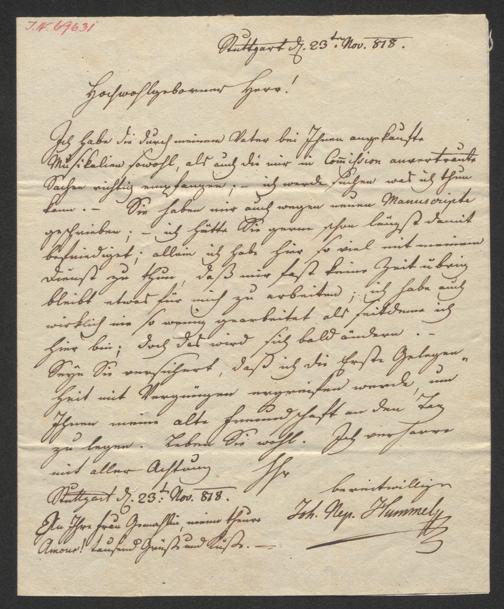 J.N. 69631
Stuttgart d. 23ten Nov. 818.
Hochwohlgeborner Herr!
Ich habe die durch meinen Vater bei Ihnen angekaufte
Musikalien sowohl, als auch die mir in Commission anvertraute
Sachen richtig empfangen; – ich werde suchen was ich thun
kann. – Sie haben mir auch wegen neuen Manuscripte
geschrieben; – ich hätte Sie gerne schon längst damit
befriediget; allein ich habe hier so viel mit meinem
Dienst zu thun, daß mir fast keine Zeit übrig
bleibt etwas für mich zu arbeiten; ich habe auch
wirklich nie so wenig gearbeitet als seitdeme ich
hier bin; doch das wird sich bald ändern. –
Seyn Sie versichert, daß ich die Erste Gelegen-
heit mit Vergnügen ergreifen werde, um
Ihnen meine alte Freundschaft an den Tag
zu legen. Leben Sie wohl. Ich verharre
mit aller Achtung Ihr
bereitwilliger
Stuttgart d. 23t. Nov. 818.
Joh. Nep. Hummel
An Ihre Frau Gemahlin, meine theure
Amour! tausend Grüße und Küße. –